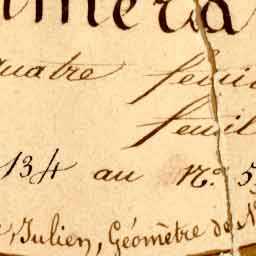 quatre feui
feuil
134 au N.o 5
Julien, Géomètre de